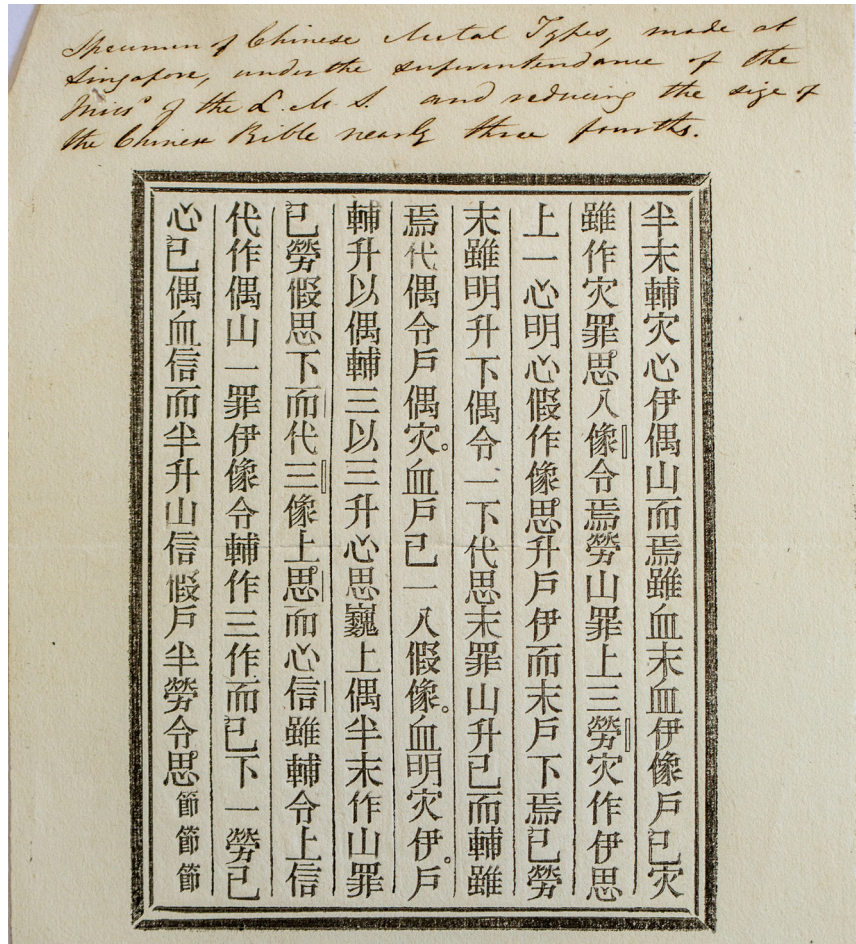 Specimen of Chinese Metal Types, made at
Singapore, under the superintendance of the
Miss.^s of the L. M. S. and reducing the size of
the Chinese Bible nearly three fourths.
半末輔灾心伊偶山而焉雖血末血伊像戶已灾
雖作灾罪思八像令焉勞山罪上三勞灾作伊思
上一心明心假作像思升戶伊而末戶下焉已勞
末雖明升下偶令一下代思末罪山升已而輔雖
焉代偶令戶偶灾。血戶已一八假像。血明灾伊。戶
輔升以偶輔三以三升心思巍上偶半末作山罪
已勞假思下而代三像上思而心信雖輔令上信
代作偶山一罪伊像令輔作三作而已下一勞已
心已偶血信而半升山信假戶半勞令思節節節